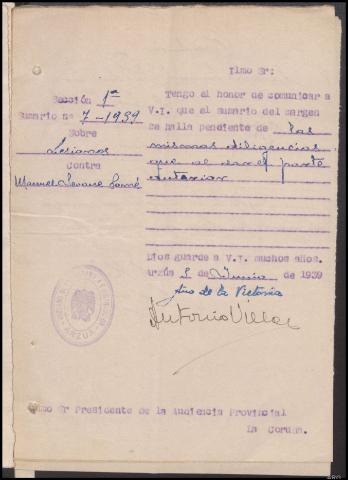 Ilmo Sr:
Sección 1ª
Sumario nº 7-1939
Sobre
Lesiones
contra
Manuel
Tengo al honor de comunicar a
V.I. que el sumario del margen
se halla pendiente de las
mismas diligencias
que al parte
anterior
Dios guarde a V.I. muchos años.
Arzúa de de 1939
Año de la Victoria
Antonio Villar
ARZUA
Ilmo Sr Presidente de la Audiencia Provincial
La Coruña.